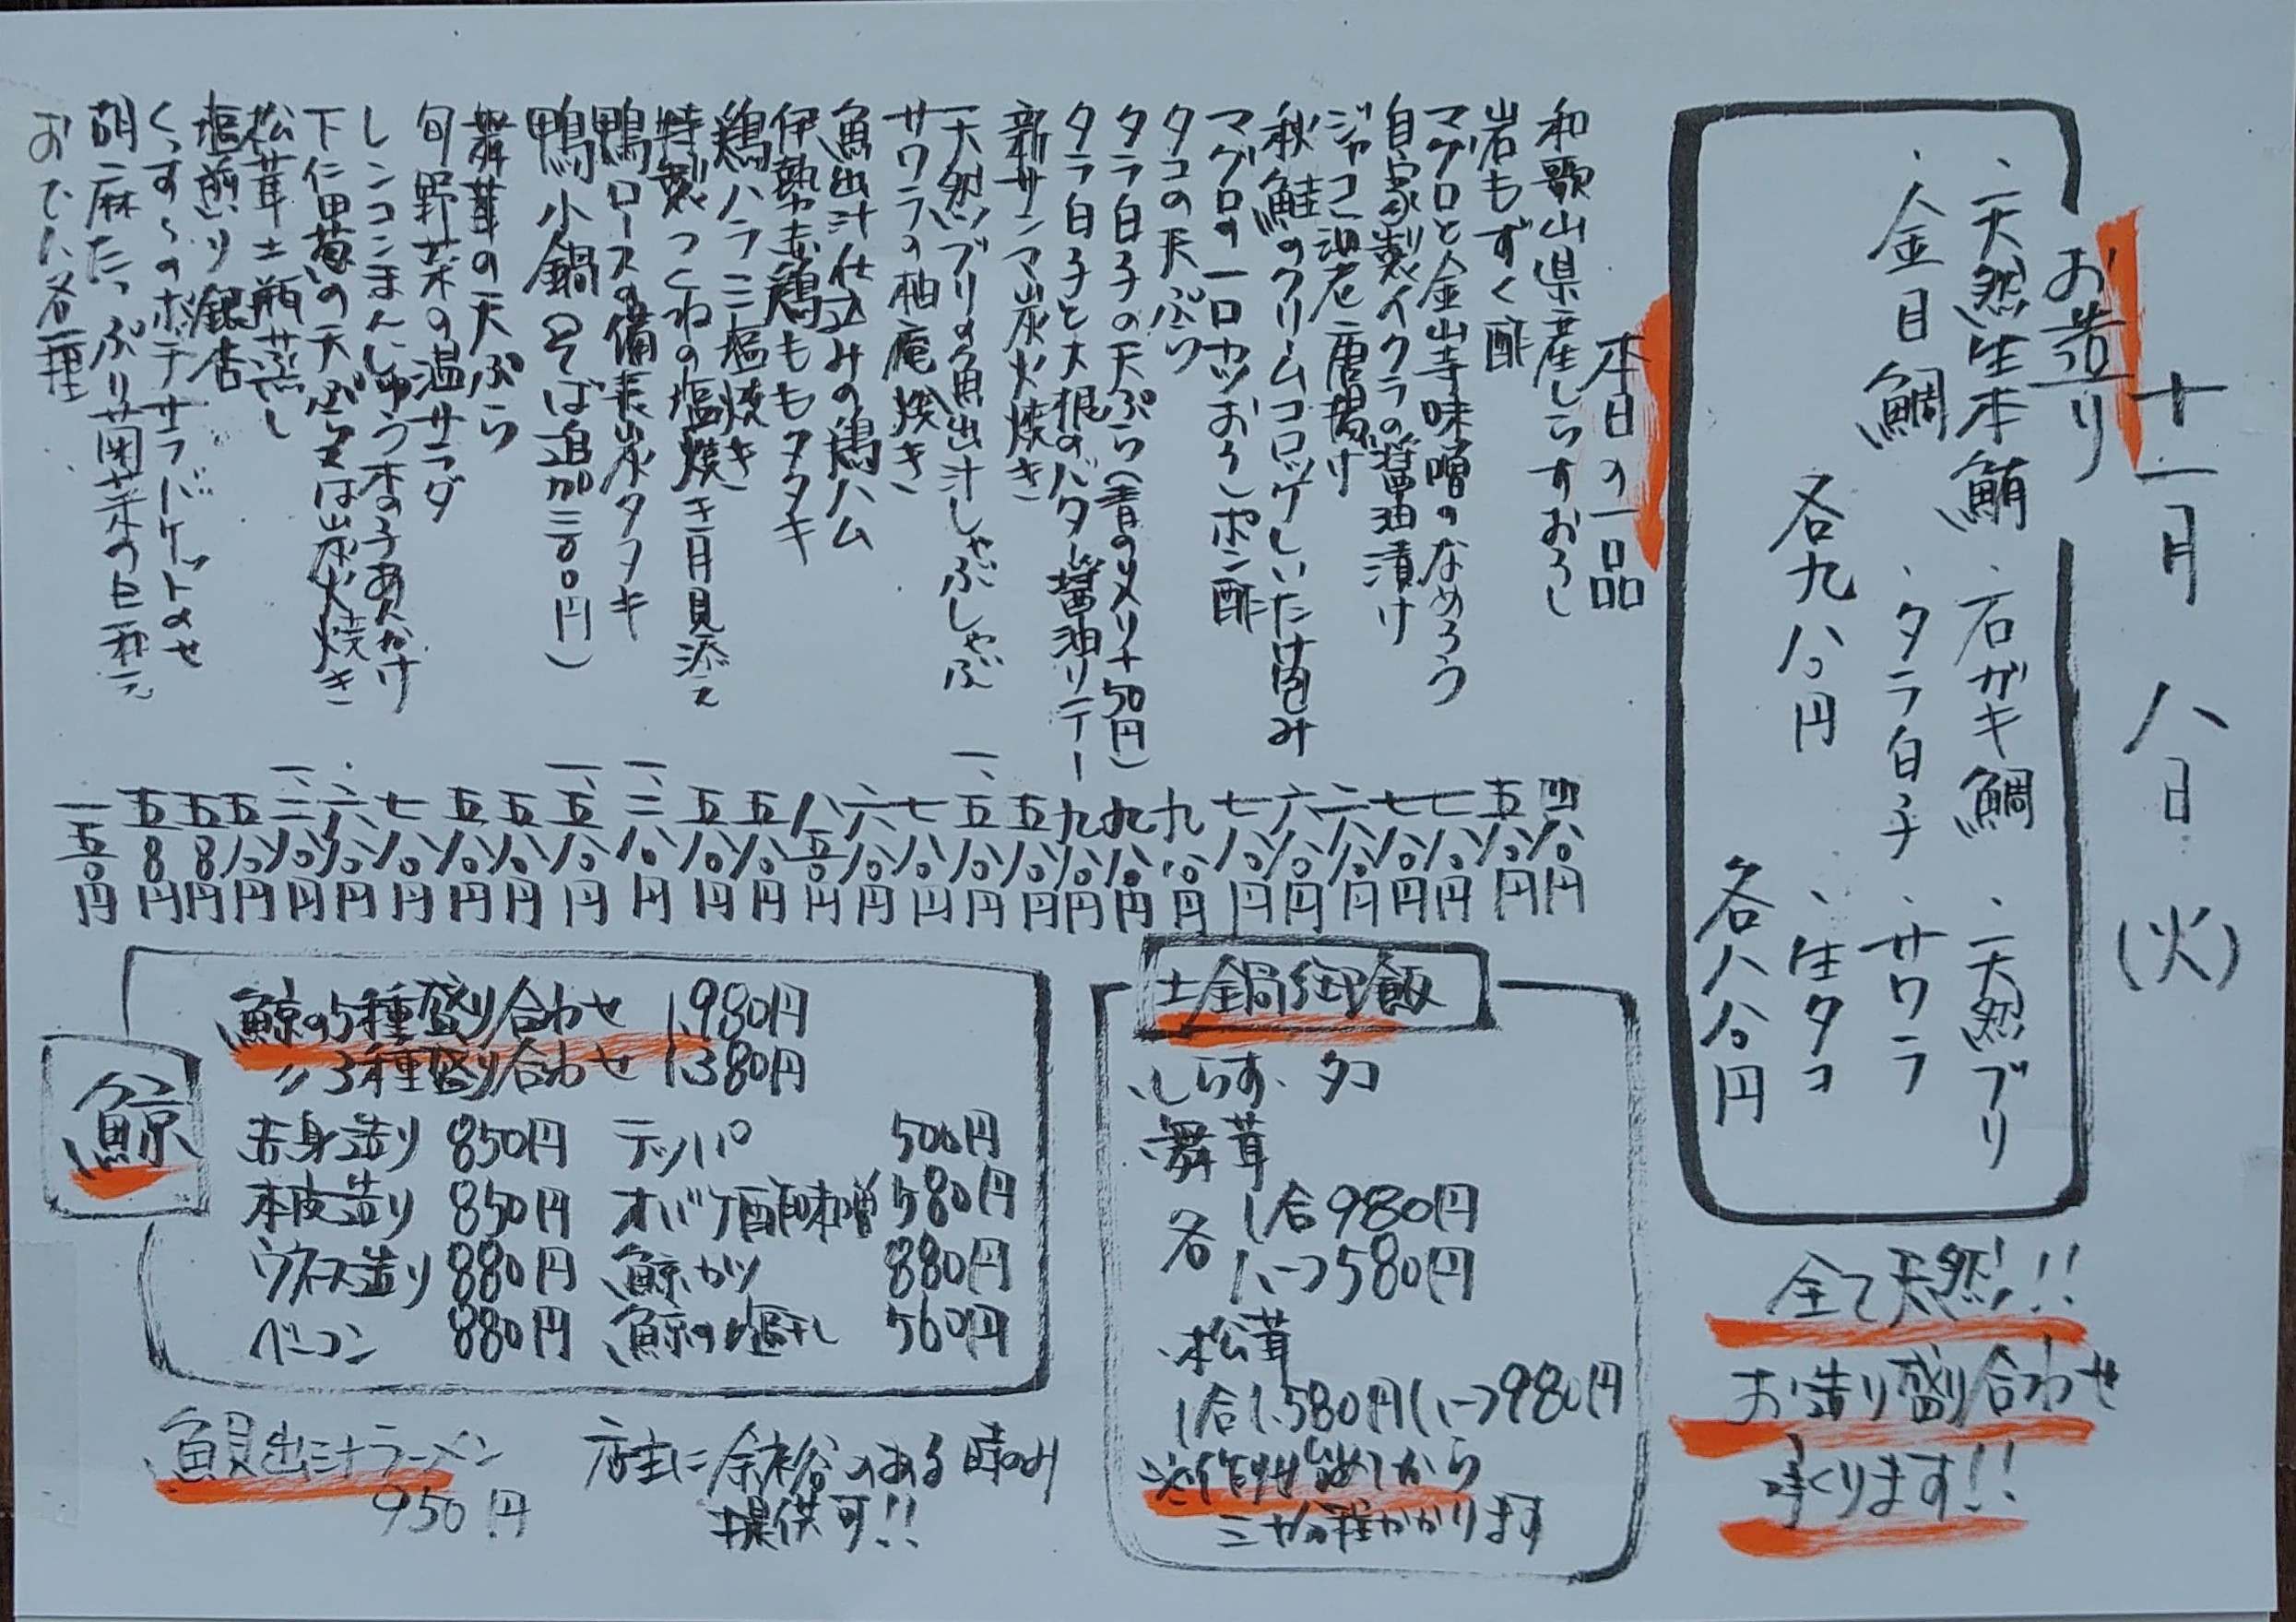 十一月八日(火)
お造り
・天然生本鮪 ・石ガキ鯛 ・天然ブリ
・金目鯛 ・タラ白子 ・サワラ
各九八〇円 ・生タコ
各八八〇円
全て天然!!
お造り盛り合わせ
承くります!!
本日の一品
和歌山県産しらすおろし 四八〇円
岩もずく酢 五八〇円
マグロと金山寺味噌のなめろう 七八〇円
自家製イクラの醤油漬け 七八〇円
ジャコ海老唐揚げ 六八〇円
秋鮭のクリームコロッケしいたけ包み 六八〇円
マグロの一口カツおろしポン酢 七八〇円
タコの天ぷら 九八〇円
タラ白子の天ぷら(青のり入り+50円) 九八〇円
タラ白子と大根のバター醤油ソテー 九八〇円
新サンマ炭火焼き 五八〇円
天然ブリの魚出汁しゃぶしゃぶ 一、五八〇円
サワラの柚庵焼き 七八〇円
魚出汁仕込みの鶏ハム 六八〇円
伊勢赤鶏ももタタキ 八五〇円
鶏ハラミ塩焼き 五八〇円
特製つくねの塩焼き月見添え 五八〇円
鴨ロースの備長炭タタキ 一、二八〇円
鴨小鍋(そば追加三〇〇円) 一、五八〇円
舞茸の天ぷら 五八〇円
旬野菜の温サラダ 五八〇円
レンコンまんじゅう木の子あんかけ 七八〇円
下仁田葱の天ぷら又は炭火焼き 六八〇円
松茸土瓶蒸し 一、二八〇円
塩煎り銀杏 五八〇円
くっすんのポテサラバケットのせ 五80円
胡麻たっぷり茼菜の白和え 五80円
おでん各種 一五〇円
土鍋御飯
・しらす・タコ
・舞茸
各 1合980円
ハーフ580円
・松茸
1合1,580円ハーフ980円
※作り始めてから
三十分程かかります
鯨
鯨の5種盛り合わせ 1,980円
〃3種盛り合わせ 1,380円
赤身造り 850円 テッパ 500円
本皮造り 850円 オバケ酢味噌 580円
ウネス造り 880円 鯨カツ 880円
ベーコン 880円 鯨の塩干し 560円
魚貝出汁ラーメン
950円
店主に余裕のある時のみ
提供可!!